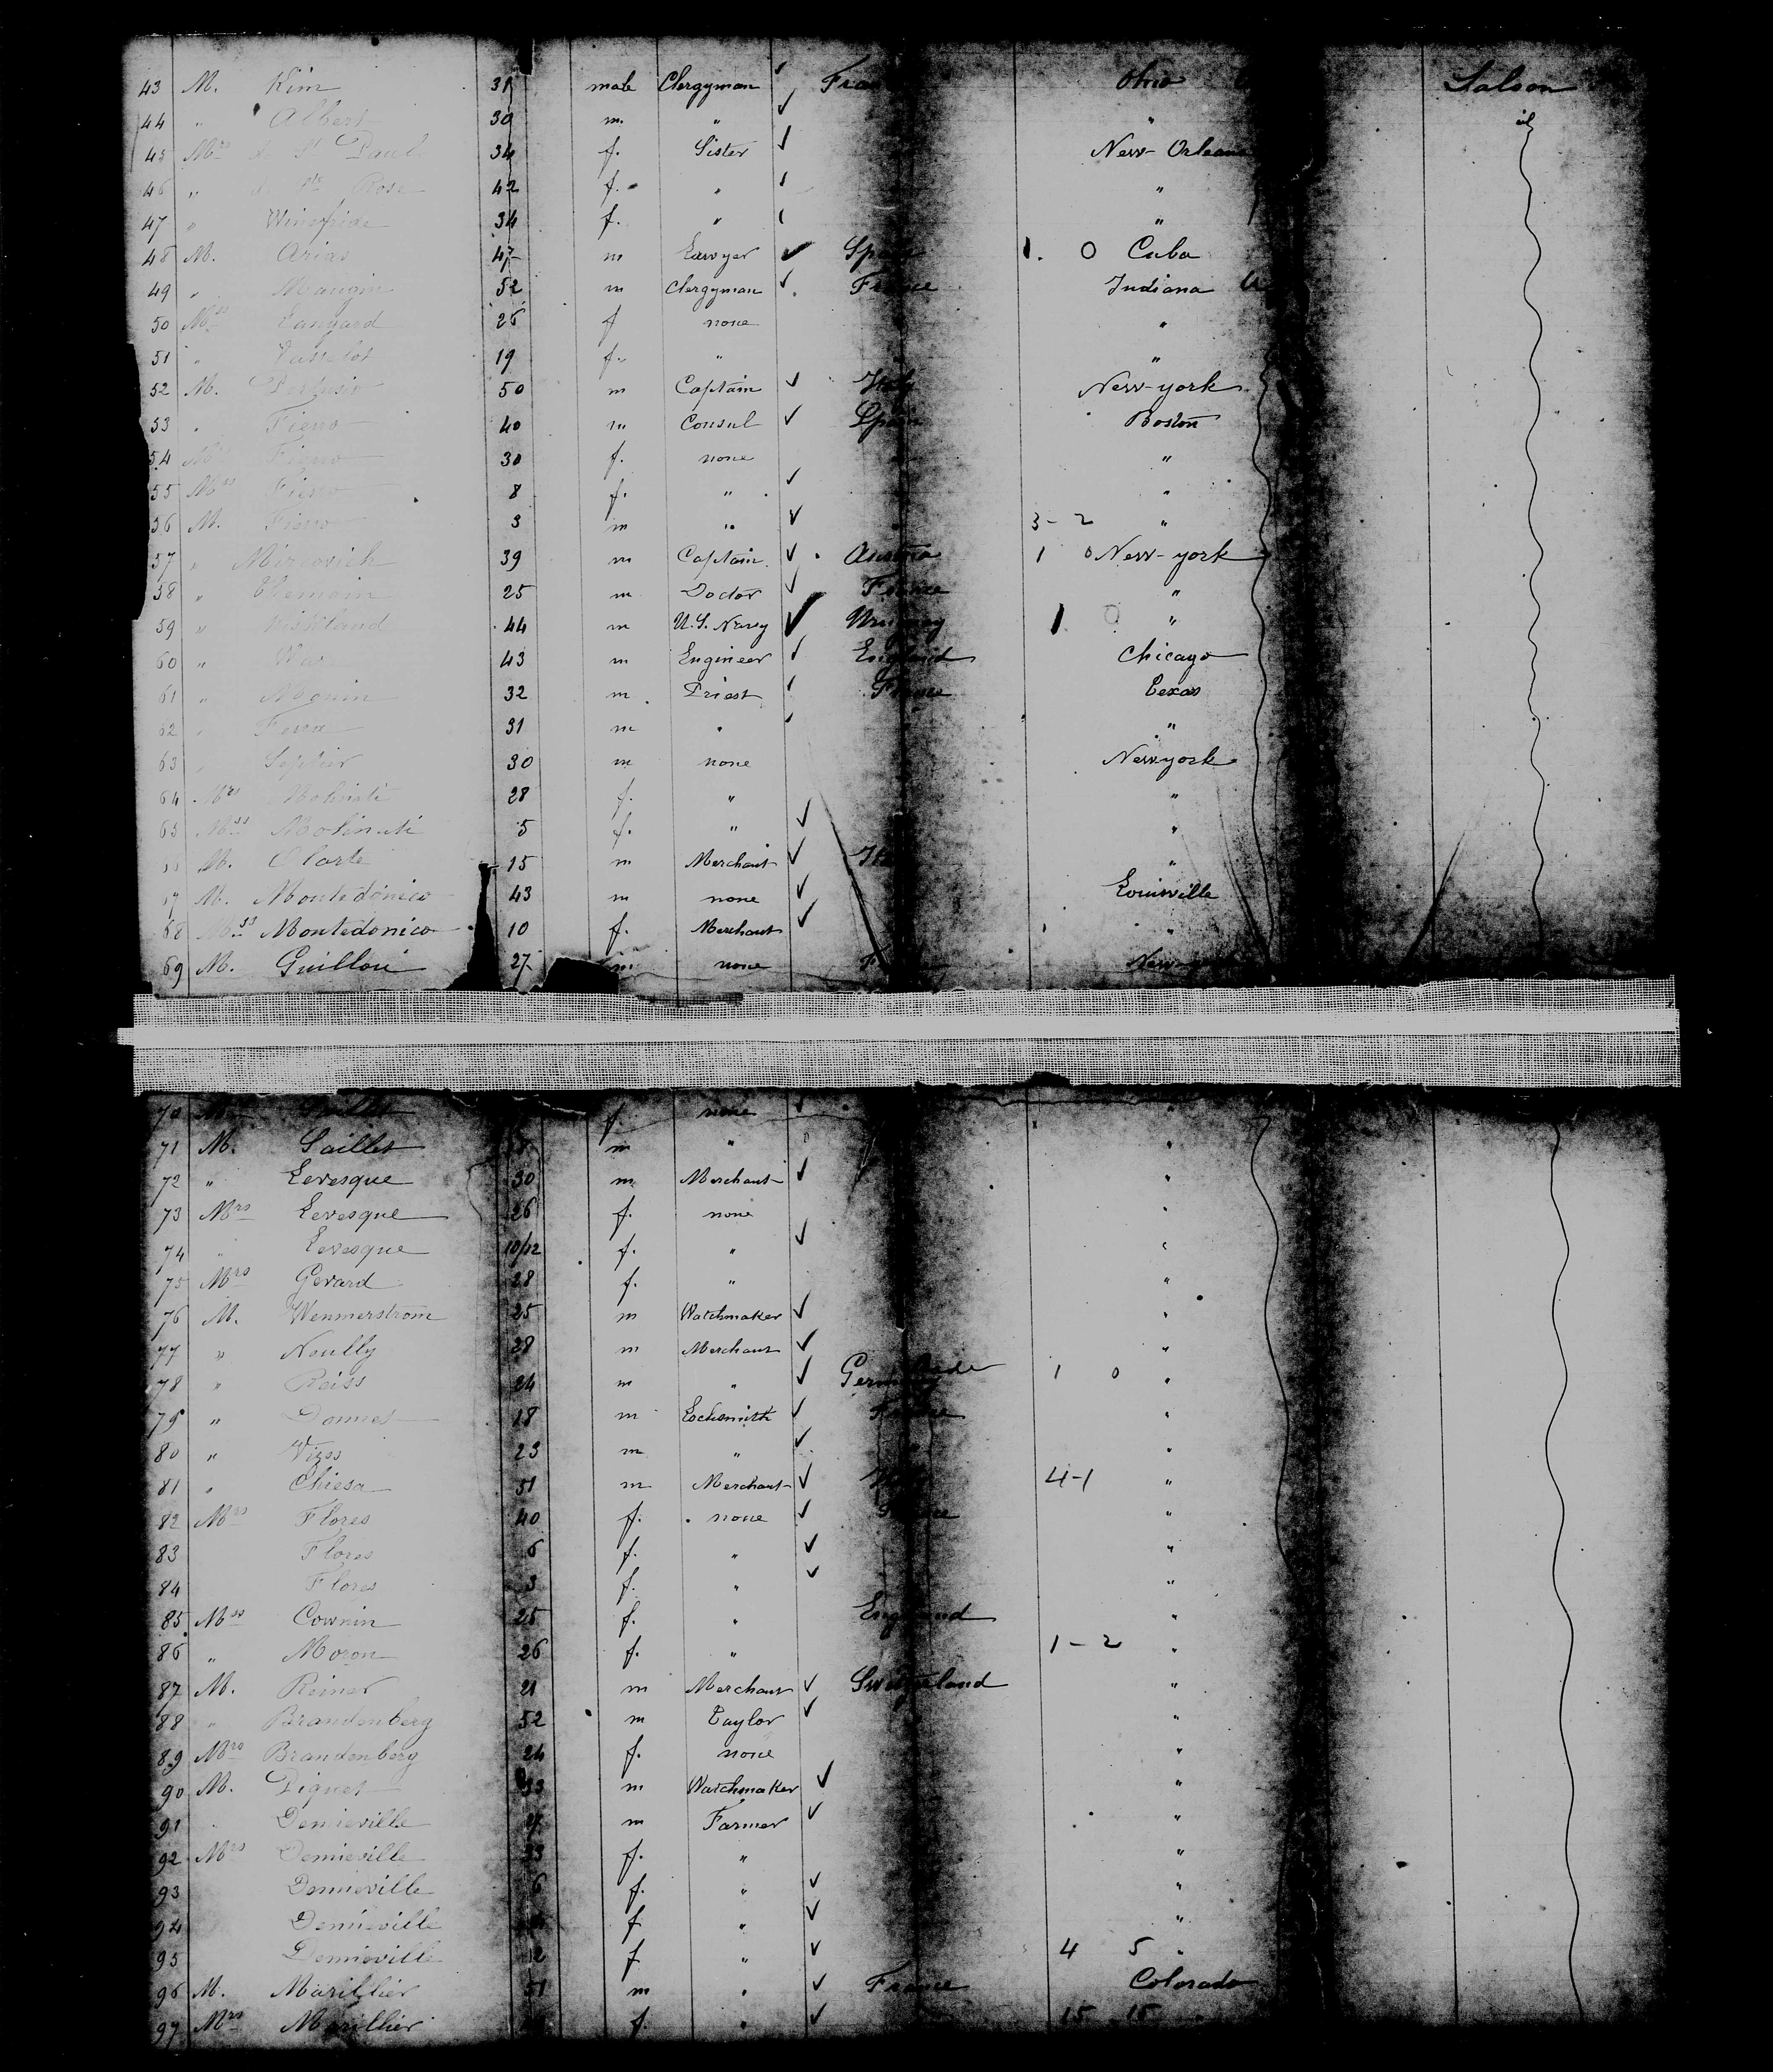 43 M. Kim 31 male Clergyman ✓ Fra Ohio Salson
44 " Albert 30 m. " ✓ " id
45 Mrs de St Paul 34 f. Sister ✓ New-Orleans
46 " de Ste Rose 42 f. " ✓ "
47 " Winefride 34 f. " "
48 M. Arias 47 m Lawyer ✓ Spain 1. 0 Cuba
49 " Mangin 52 m Clergyman ✓ France Indiana
50 Mss 26 f none "
51 " 19 f. " "
52 M. 50 m Captain ✓ Italy New-york
53 " Fierro 40 m Consul ✓ Spain Boston
54 Mrs Fierro 30 f. none "
55 Mss Fierro 8 f. " ✓ "
56 M. Fierro 3 m " ✓ 3-2 "
57 " Mircovich 39 m Captain ✓ Austria 1 0 New-york
58 " 25 m Doctor ✓ France "
59 " 44 m U.S. Navy ✓ 1 0 "
60 " 43 m Engineer ✓ England Chicago
61 " 32 m Priest ✓ France Texas
62 " 31 m " ✓ "
63 " 30 m none Newyork
64 Mrs Molinati 28 f. " "
65 Mss Molinati 5 f. " ✓ "
66 M. Olarte 15 m Merchant ✓ It "
67 M. Montedonico 43 m none ✓ Louisville
68 Mss Montedonico 10 f. Merchant ✓ "
69 M. Guillou 27 m none F New-
70 f. none ✓ "
71 M. Saillet m " "
72 " Levesque 30 m Merchant ✓ "
73 Mrs Levesque 26 f. none "
74 " Levesque 10/12 f. " ✓ "
75 Mrs Gerard 28 f. " "
76 M. Wennerstrom 25 m Watchmaker ✓ "
77 " Neully 28 m Merchant ✓ "
78 " Reiss 24 m " ✓ Germany Bade 1 0 "
79 " 18 m Locksmith ✓ France "
80 " 23 m " ✓ "
81 " Chiesa 51 m Merchant ✓ 4-1 "
82 Mrs Flores 40 f. none ✓ "
83 Flores 6 f. " ✓ "
84 Flores 3 f. " ✓ "
85 Mss Cownin 25 f. " England "
86 " Moron 26 f. " 1-2 "
87 M. Reiner 21 m Merchant ✓ Switzerland "
88 " Brandenberg 52 m Taylor ✓ "
89 Mrs Brandenberg 24 f. none "
90 M. Piguet 33 m Watchmaker ✓ "
91 " Demieville m Farmer ✓ "
92 Mrs Demieville 33 f. " "
93 Demieville 6 f. " ✓ "
94 Demieville f " ✓ "
95 Demieville 2 f " ✓ 4 5 "
96 M. Marillier 51 m " ✓ France Colorado
97 Mrs Marillier f. " ✓ 15 15